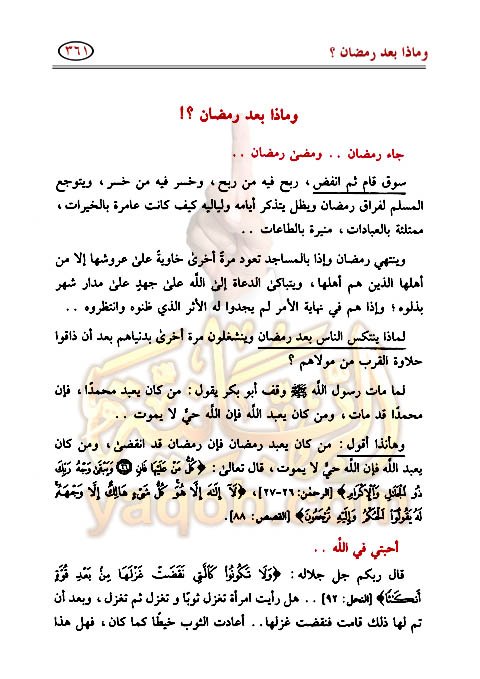 وماذا بعد رمضان ؟
٣٦١
وماذا بعد رمضان ؟!
جاء رمضان .. ومضىٰ رمضان ..
سوق قام ثم انفض ، ربح فيه من ربح ، وخسر فيه من خسر ، ويتوجع
المسلم لفراق رمضان ويظل يتذكر أيامه ولياليه كيف كانت عامرة بالخيرات ،
ممتلئة بالعبادات ، منيرة بالطاعات ..
وينتهي رمضان وإذا بالمساجد تعود مرةً أخرىٰ خاويةً علىٰ عروشها إلا من
أهلها الذين هم أهلها ، ويتباكىٰ الدعاة إلىٰ اللَّه علىٰ جهدٍ علىٰ مدار شهر
بذلوه ؛ وإذا هم في نهاية الأمر لم يجدوا له الأثر الذي ظنوه وانتظروه ..
لماذا ينتكس الناس بعد رمضان وينشغلون مرة أخرىٰ بدنياهم بعد أن ذاقوا
حلاوة القرب من مولاهم ؟
لما مات رسول اللَّه ﷺ وقف أبو بكر يقول : من كان يعبد محمدًا ، فإن
محمدًا قد مات ، ومن كان يعبد اللَّه فإن اللَّه حيٌّ لا يموت ..
وهأنذا أقول : من كان يعبد رمضان فإن رمضان قد انقضىٰ ، ومن كان
يعبد اللَّه فإن اللَّه حيٌّ لا يموت ، قال تعالىٰ : ﴿كُلُّ مَنْ عَلَيْهَا فَانٍ ﴿٢٦﴾ وَيَبْقَىٰ وَجْهُ رَبِّكَ
ذُو الْجَلَالِ وَالْإِكْرَامِ﴾ [الرحمٰن: ٢٦-٢٧] ، ﴿لَا إِلَٰهَ إِلَّا هُوَ كُلُّ شَيْءٍ هَالِكٌ إِلَّا وَجْهَهُ
لَهُ الْحُكْمُ وَإِلَيْهِ تُرْجَعُونَ﴾ [القصص: ٨٨].
أحبتي في اللَّه ..
قال ربكم جل جلاله : ﴿وَلَا تَكُونُوا كَالَّتِي نَقَضَتْ غَزْلَهَا مِنْ بَعْدِ قُوَّةٍ
أَنْكَاثًا﴾ [النحل: ٩٢] .. هل رأيت امرأة تغزل ثوبًا و تغزل ثم تغزل ، وبعد أن
تم لها ذلك قامت فنقضت غزلها.. أعادت الثوب خيطًا كما كان ، فهل هذا